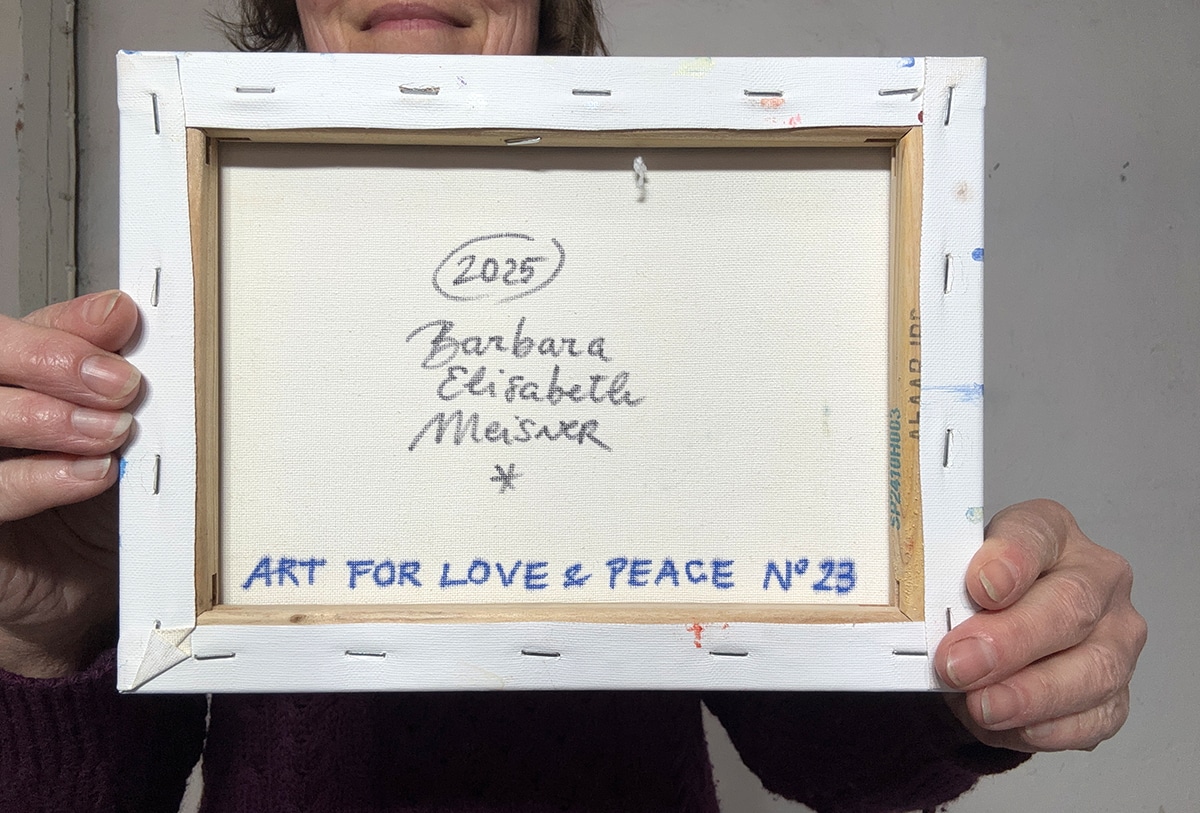 2025
Barbara
Elisabeth
Meisner
*
ART FOR LOVE & PEACE Nº 23
SP2410H003